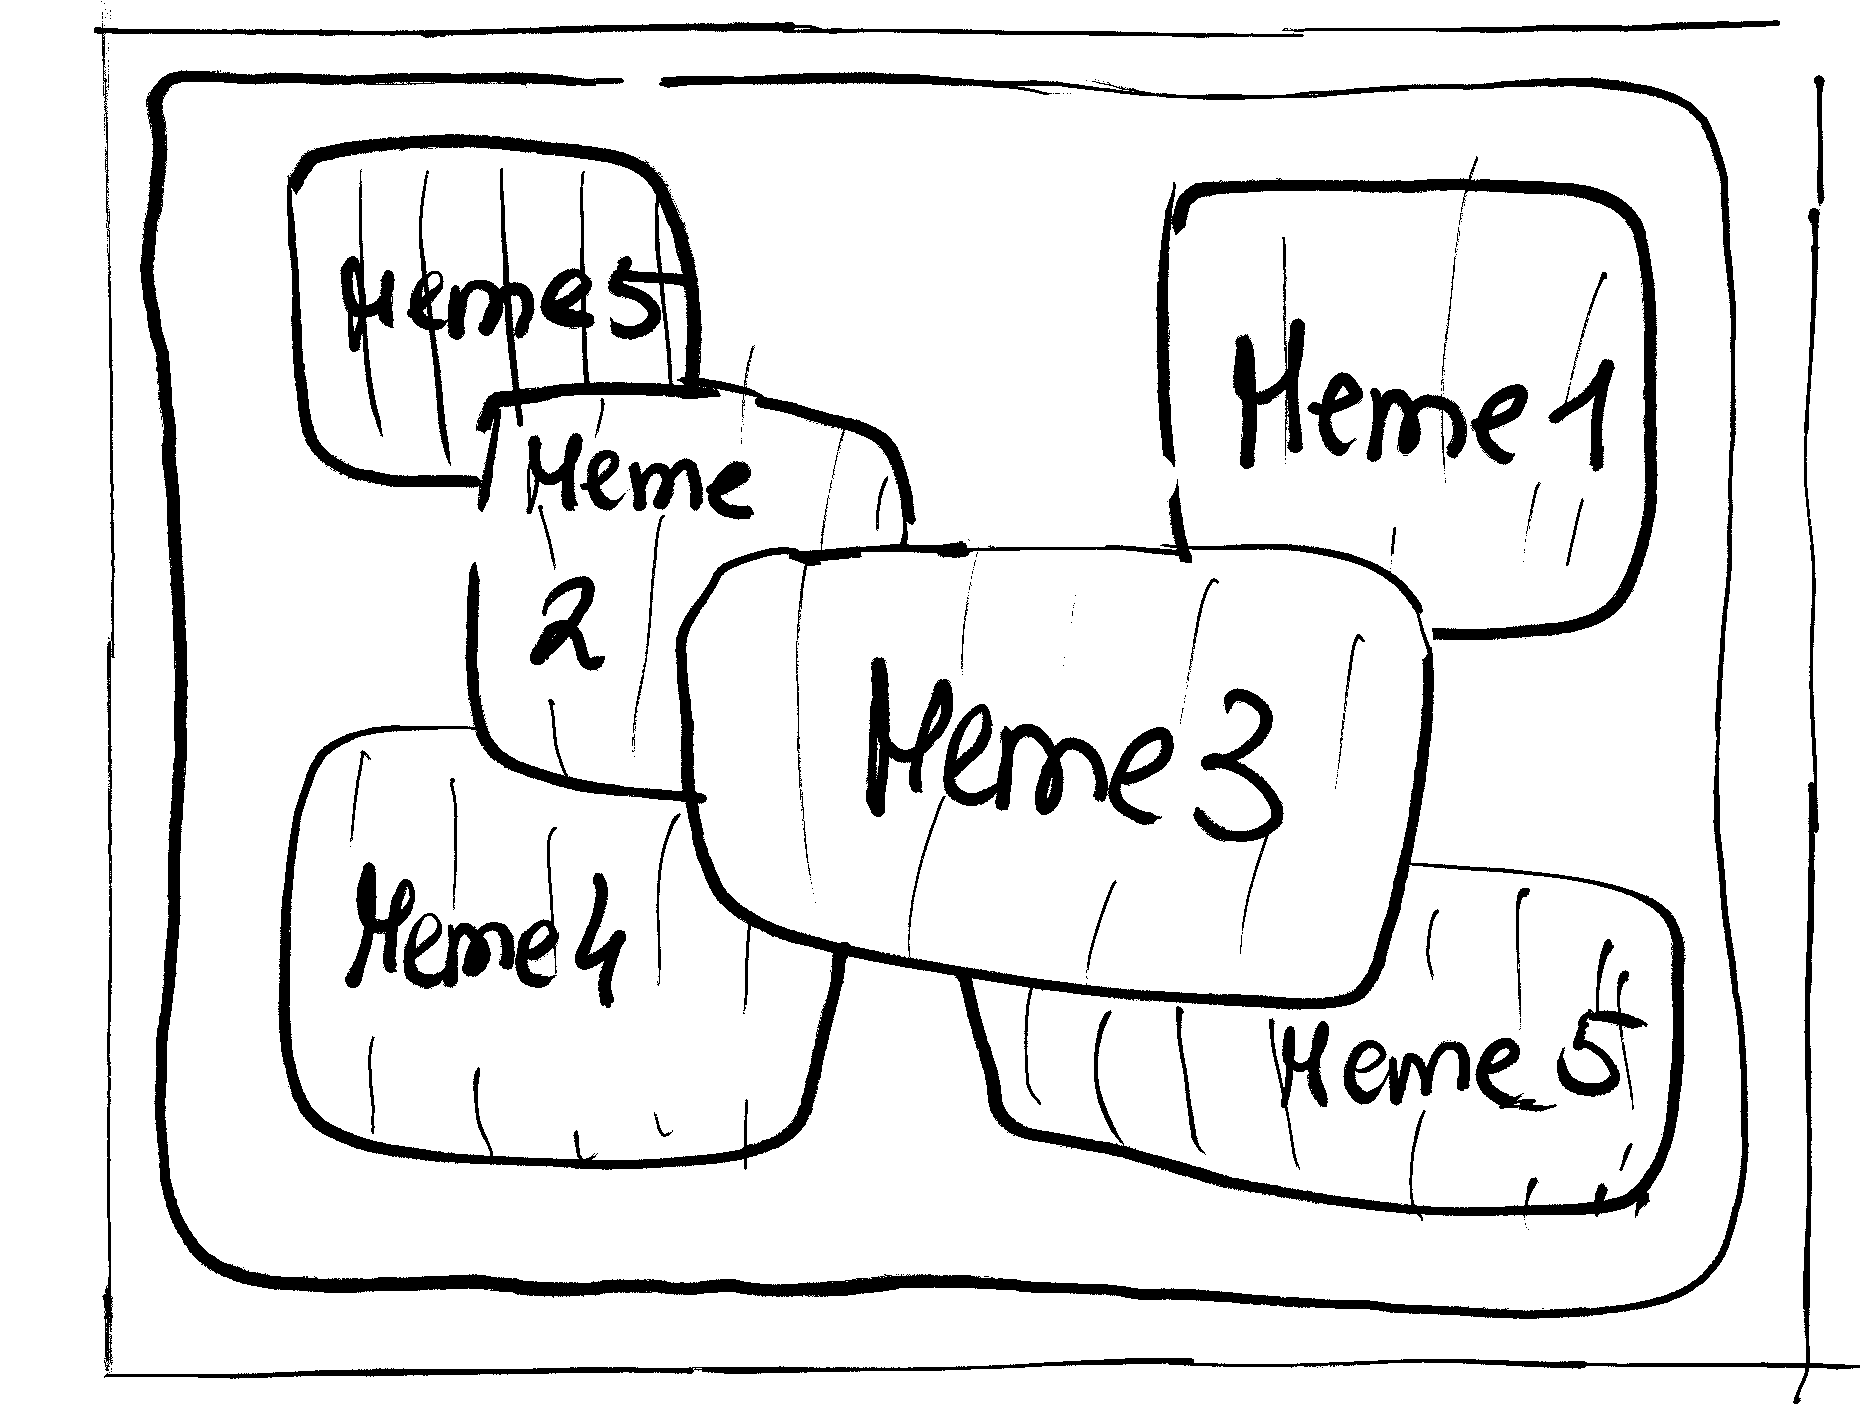 Meme 5
Meme 1
Meme
2
Meme 3
Meme 4
Meme 5